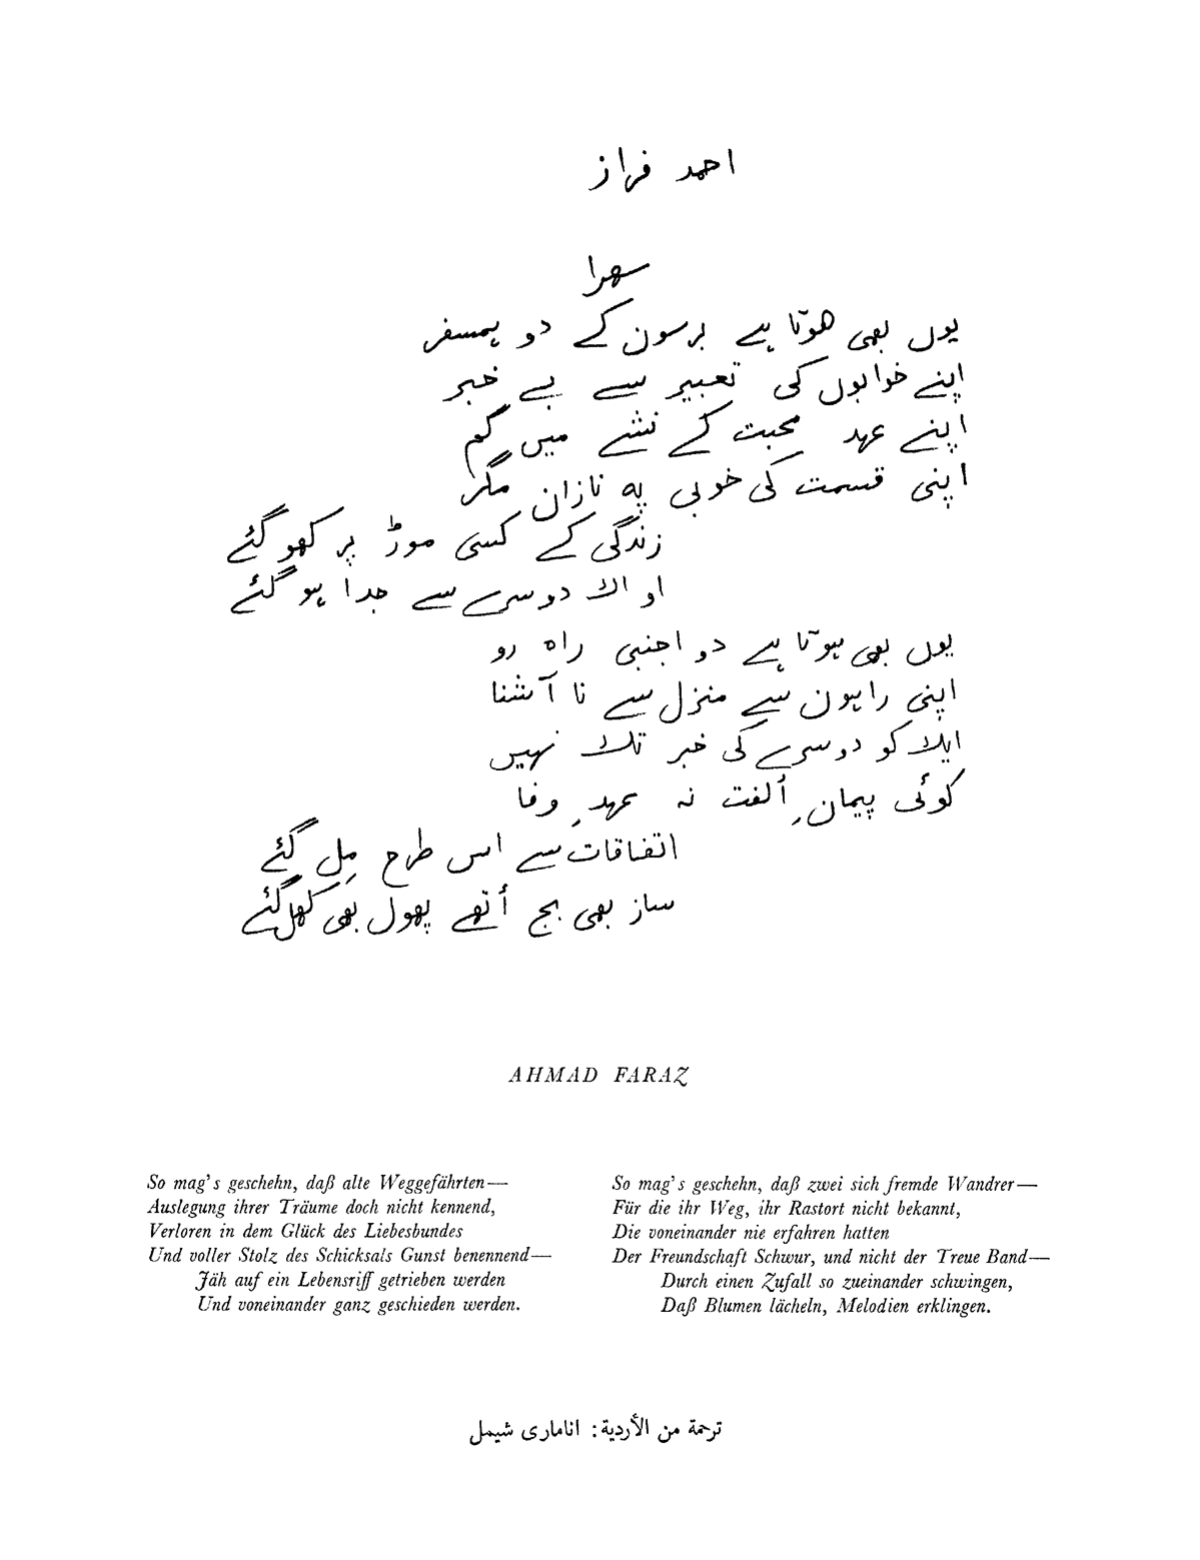 احمد فراز
سہرا
یوں بھی ھوتا ہے برسوں کے دو ہمسفر
اپنے خوابوں کی تعبیر سے بے خبر
اپنے عہد محبت کے نشے میں گم
اپنی قسمت کی خوبی پہ نازان مگر
زندگی کے کسی موڑ پر کھو گئے
او اک دوسرے سے جدا ہو گئے
یوں بھی ہوتا ہے دو اجنبی راہ رو
اپنی راہون سے منزل سے نا آشنا
ایک کو دوسرے کی خبر تک نہیں
کوئی پیمانِ اُلفت نہ عہدِ وفا
اتفاقات سے اس طرح مِل گئے
ساز بھی بج اُٹھے پھول بھی کھل گئے
AHMAD FARAZ
So mag's geschehn, daß alte Weggefährten—
Auslegung ihrer Träume doch nicht kennend,
Verloren in dem Glück des Liebesbundes
Und voller Stolz des Schicksals Gunst benennend—
Jäh auf ein Lebensriff getrieben werden
Und voneinander ganz geschieden werden.
So mag's geschehn, daß zwei sich fremde Wandrer—
Für die ihr Weg, ihr Rastort nicht bekannt,
Die voneinander nie erfahren hatten
Der Freundschaft Schwur, und nicht der Treue Band—
Durch einen Zufall so zueinander schwingen,
Daß Blumen lächeln, Melodien erklingen.
ترجمة من الأردية: انامارى شيمل